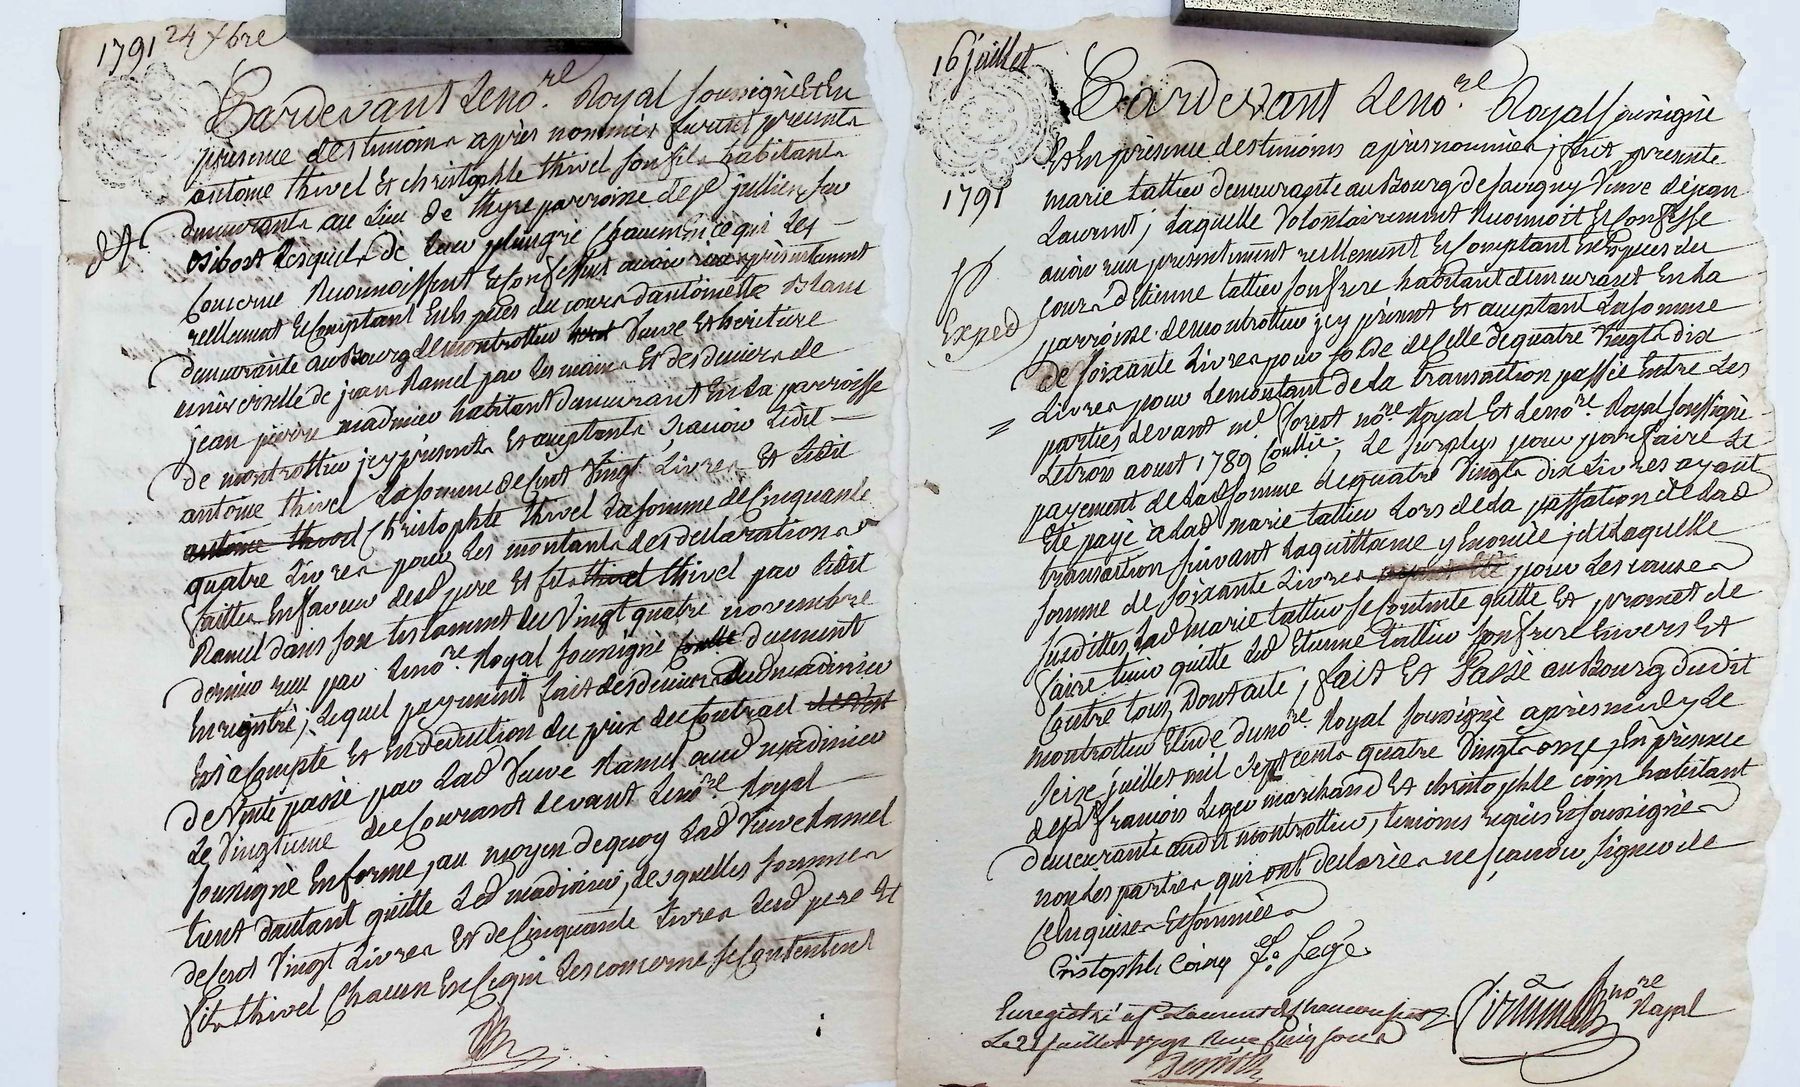 1791 24 xbre
Pardevant Le no.re Royal soussigné Et En
présence des temoins après nommés furent présents
antoine thivel Et christophle thivel son fils habitants
demeurants au Lieu de thyre parroisse de st jullien sur
bibost Lesquels de Leur plein gré chacun En ce qui Les
concerne Reconnoissent Et confessent avoir reçu présentement
réellement Et comptant En Espèces du cours d'antoinette Blanc
demeurante au Bourg de montrottier veuve Et héritière
universelle de jean Ramel par Les mains Et des deniers de
jean pierre madinier habitant demeurant En La parroisse
de montrottier icy présents Et acceptants scavoir Ledit
antoine thivel La somme de Cent Vingt Livres Et Ledit
antoine thivel Christophle thivel La somme de Cinquante
quatre Livres pour Les montants des declarations
faittes En faveur desd. pere Et fils thivel thivel par Ledit
Ramel dans son testament du Vingt quatre novembre
dernier reçu par Le no.re Royal soussigné duement
Enregistré, Lequel payement fait des deniers dud. madinier
Est à Compte Et En deduction du prix du Contract
de Vente passé par Lad. Veuve Ramel aud. madinier
Le Vingtieme du Courant devant Le no.re Royal
soussigné En forme, au moyen de quoy Lad. Veuve Ramel
tient dautant quitte Led. madinier, desquelles sommes
de Cent Vingt Livres Et de Cinquante Livres Lesd. pere Et
fils thivel Chacun En Ce qui Les concerne se Contentent
16 juillet
1791
Exped
Pardevant Le no.re Royal soussigné
Et En présence des temoins après nommés, fut présente
marie tattier demeurante au Bourg de savigny Veuve de jean
Laurent, Laquelle Volontairement Reconnoit Et Confesse
avoir reçu présentement réellement Et Comptant En Espèces du
cours d'Etienne tattier son frere habitant demeurant En La
parroisse de montrottier icy présent Et acceptant La somme
de soixante Livres pour solde de Celle de quatre Vingts dix
Livres pour Le montant de La transaction passée Entre Les
parties devant me. Forest no.re Royal Et Le no.re Royal soussigné
Le trois aoust 1789 Collié; Le surplus pour parfaire Le
payement de Lad. somme de quatre Vingts dix Livres ayant
Eté payé à Lad. marie tattier Lors de La passation de Lad.
transaction suivant La quittance y Enoncée; de Laquelle
somme de soixante Livres pour Les causes
susdittes, Lad. marie tattier se Contente quitte Et promet de
faire tenir quitte Led. Etienne tattier son frere Envers Et
Contre tous, Dont acte, fait Et Passé au Bourg dudit
montrottier Etude du no.re Royal soussigné après midy Le
seize juillet mil sept cents quatre Vingts onze, En présence
de sr. francois Leger marchand Et christophle coin habitant
demeurants aud. montrottier, temoins requis Et soussignés
non Les parties qui ont declarées ne scavoir signer de
Ce Enquises Et sommées
Cristophle Coing fs. Legé
no.re Royal
Enregistré a st Laurent de chamousset
Le 21 juillet 1791 Reçu Cinq sous